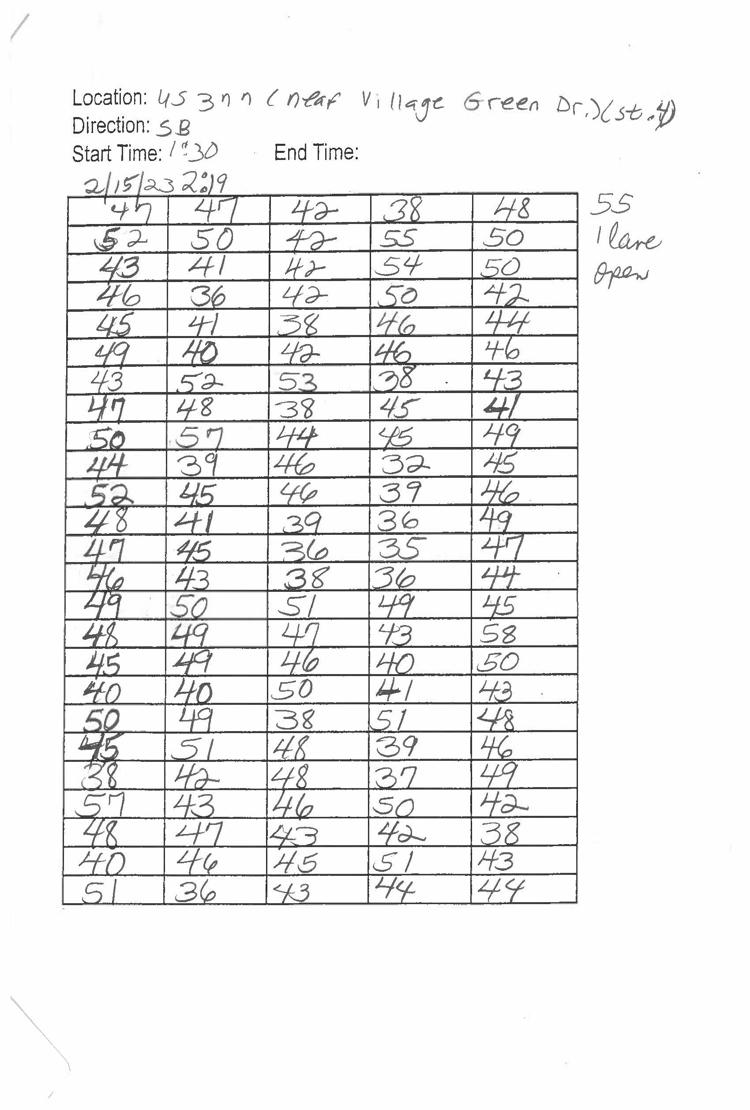 Location: US 3nn (near Village Green Dr.)(st.4)
Direction: SB
Start Time: 1:30 End Time:
2/15/23 2:19
47 47 42 38 48 55
52 50 42 55 50 1 lane
43 41 42 54 50 open
46 36 42 50 42
45 41 38 46 44
49 40 42 46 46
43 52 53 38 43
47 48 38 45 41
50 57 44 45 49
44 39 46 32 45
52 45 46 39 46
48 41 39 36 49
47 45 36 35 47
46 43 38 36 44
49 50 51 49 45
48 49 47 43 58
45 49 46 40 50
40 40 50 41 43
50 49 38 51 48
45 51 48 39 46
38 42 48 37 49
57 43 46 50 42
48 47 43 42 38
40 46 45 51 43
51 36 43 44 44